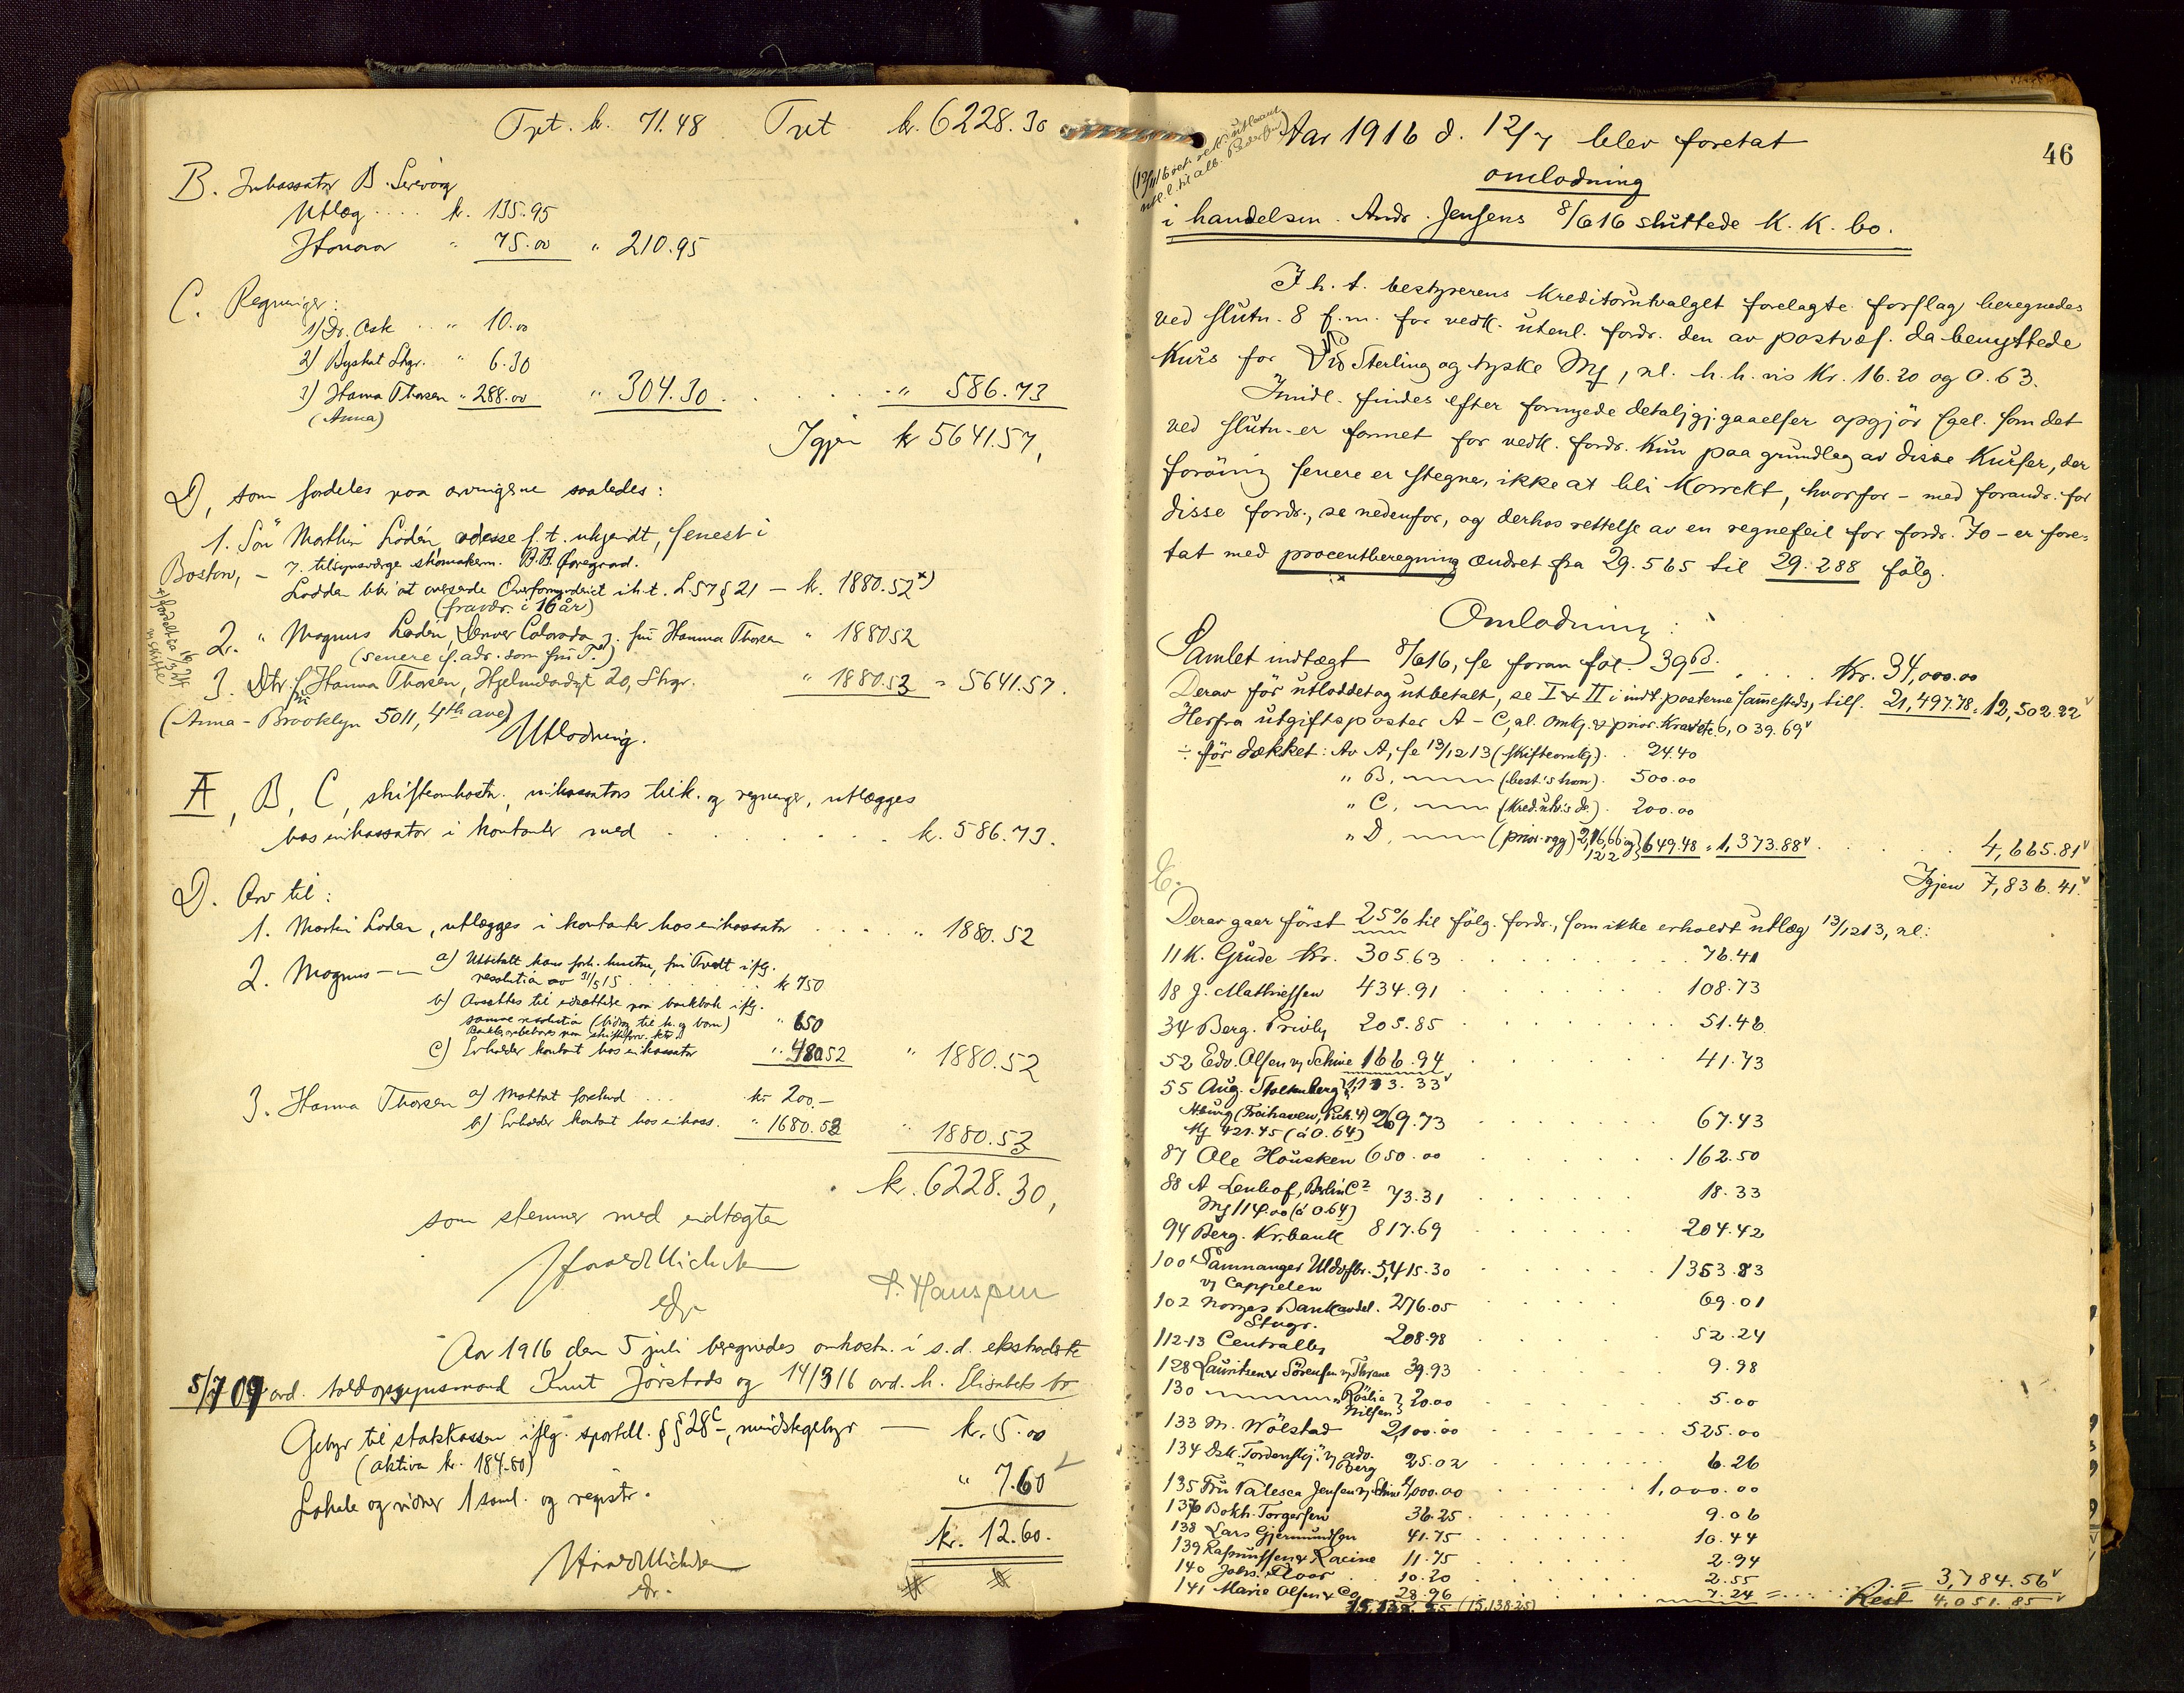 Trpt. kr. 71.48 Trpt kr. 6228.30
B. Inkassator B. Sæevorg
Utlæg .... kr. 135.95
Honorar " 75.00 " 210.95
C. Regninger:
1) Dr. Ask .. " 10.00
2) Byskat Stgr. " 6.30
3) Hanna Thorsen " 288.00 " 304.30 . . . . . " 586.73
(Anna)
Igjen kr 5641.57,
D, som fordeles paa arvingerne saaledes:
1. Sön Marthin Lodén, adesse f. t. ukjendt, senest i
Boston, – 7. tilsynsværge skomakerm. B.B. Foregrad.
Lodden blir at oversende Overformynderiet i h. t. L. 57 § 21 – kr. 1880.52 x)
(fravær. i 16 år)
2. " Magnus Lodén, Denver Colorado, fru Hanna Thorsen " 1880.52
(senere f. adr. som fru T.)
3. Dtr. fru Hanna Thorsen, Hjelmelandsgt 20, Stgr. " 1880.53 = 5641.57.
(Anna – Brooklyn 5011, 4th ave)
Utlodning.
A, B, C, skifteomkostn., inkassators tilk. og regninger, utlægges
hos inkassator i kontanter med . . . . . kr. 586.73.
D. Arv til:
1. Martin Loden, utlægges i kontanter hos inkassator . . . . . " 1880.52
2. Magnus –"– a) Utbetalt hans forh. hustru, fru Tvedt iflg.
resolution av 31/5 15 . . . . . kr 750
b) Avsættes til indsættelse paa bankbok iflg.
samme resolution (bidrag til h. og barn) " 650
c) Erholder kontant hos inkassator " 480.52 " 1880.52
3. Hanna Thorsen a) Mottat forskud ... kr 200.–
b) Erholder kontant hos inkass. " 1680.53 " 1880.53
kr. 6228.30,
som stemmer med indtægten
edr
P. Hanssen
Aar 1916 den 5 juli beregnedes omkostn. i s. d. eksekuterte
5/7 09 avd. toldopsynsmand Knut Jörstads og 14/3 16 avd. h. Elisabets bo
Gebyr til statskassen iflg. sportell. §§ 28 c –, mindstegebyr — kr. 5.00
(aktiva kr. 184.80)
Lokale og vidner 1 saml. og registr. " 7.60
kr. 12.60.
edr.
46
Aar 1916 d. 12/7 blev foretat
omlodning
i handelsm. Andr. Jensens 8/6 16 sluttede K. K. bo.
I h. t. bestyrerens Kreditorutvalget forelagte forslag beregnedes
ved slutn. 8 f. m. for vedk. utenl. fordr. den av postvæs. da benyttede
Kurs for Pd Sterling og tyske Mk, nl. h. h. vis Kr. 18.20 og 0.63.
Imidl. findes efter fornyede detaljgjgaaelser opgjör sael. som det
ved slutn- er formet for vedk. fordr. Kun paa grundlag av disse Kurser, der
foröving senere er stegne, ikke at bli Korrekt, hvorfor – med forandr. for
disse fordr., se nedenfor, og derhos rettelse av en regnefeil for fordr. 70 – er fore=
tat med procentberegning ændret fra 29.565 til 29.288 fölg.
Omlodning:
Samlet indtægt 8/6 16, se foran fol. 39 b. . . . . Kr. 34,000.00
Derav för utloddet og utbetalt, se I & II i indt. posterne sammesteds, tils. 21,497.78 = 12,502.22
Herfra utgiftsposter A – C, al. omk. & prior. Krav etc. 6,039.69
÷ för dækket: Av A, se 13/12 13 (skifteomk). . 24.40
" B, —"— (best.'s hon). 500.00
" C, —"— (Kred.utv.'s do.). 200.00
" D, —"— (prior. og g) 649.48 = 1,373.88 . . . . 4,665.81
Igjen 7,836.41
Derav gaar först 25% til fölg. fordr., som ikke erholdt utlæg 13/12 13, nl:
11 K. Grude Kr. 305.63 . . . . . 76.41
18 J. Mathiessen 434.91 . . . . . 108.73
34 Berg. Privbk 205.85 . . . . . 51.46
52 Edv. Olsen v/ Schive 166.94 . . . . . 41.73
55 Aug. Stoltenberg 1,113.33
Hburg (Freihaven, Pick. 4) 269.73 . . . . . 67.43
Mk 421.45 (á 0.64)
87 Ole Housken 650.00 . . . . . 162.50
88 A Lenhof, Berlin C2 73.31 . . . . . 18.33
Mk 114.00 (á 0.64)
94 Berg. Kr.bank 817.69 . . . . . 204.42
100 Samnanger Uldvfbr. 5,415.30 . . . . . 1353.83
v/ Cappelen
102 Norges Bank avdel. 276.05 . . . . . 69.01
Stvgr.
112-13 Centralbk 208.98 . . . . . 52.24
128 Lauritsen & Sörensen v/ Thrane 39.93 . . . . . 9.98
130 —"— Nilsen 20.00 . . . . . 5.00
133 M. Wölstad 2,100.00 . . . . . 525.00
134 Dsk. "Tordenskj." v/ adv. Berg 25.02 . . . . . 6.26
135 Fru Valesca Jensen v/ Schive 4,000.00 . . . . . 1,000.00
136 Bokh. Torgersen 36.25 . . . . . 9.06
138 Lars Gjermundsen 41.75 . . . . . 10.44
139 Rasmussen & Racine 11.75 . . . . . 2.94
140 Johs. Floor 10.20 . . . . . 2.55
141 Marie Olsen & Co 28.96 . . . . . 7.24 = . . . . 3,784.56
(15,138.25) Rest 4,051.85